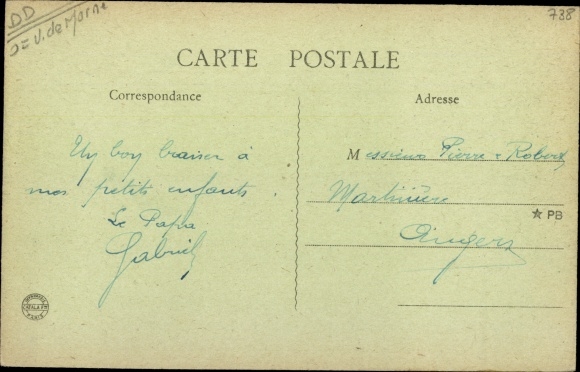 DD
V. de Marne
738
CARTE POSTALE
Correspondance
Adresse
Un bon baiser à
mes petits enfants.
Le Papa
Gabriel
Messieurs Pierre & Robert
Martinière
★ PB
Angers
PARIS